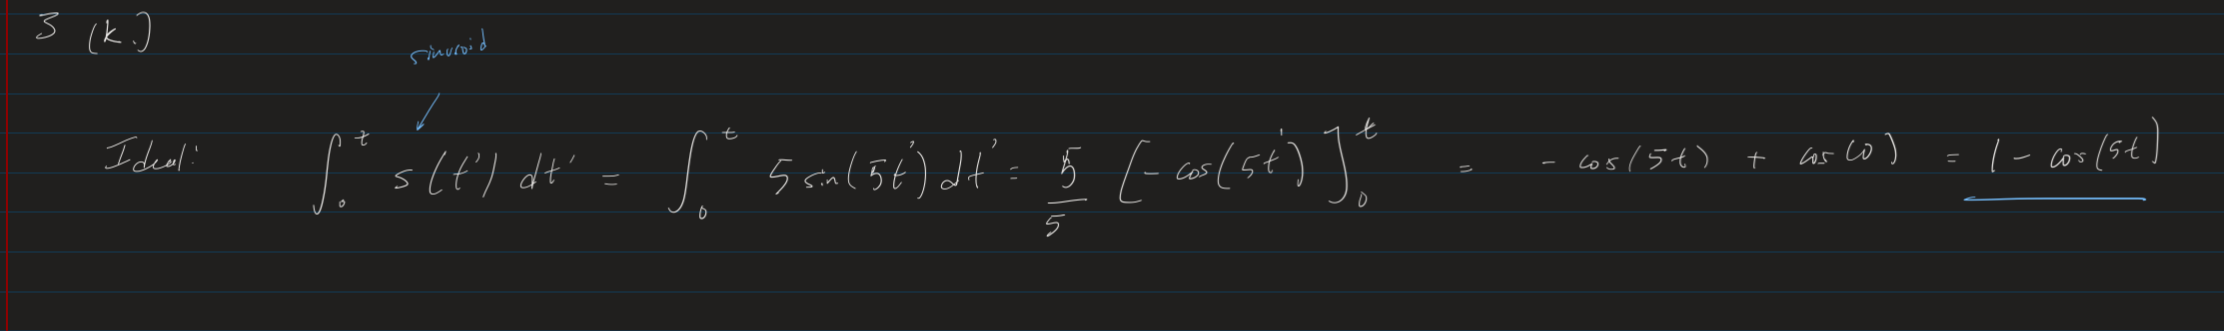 3 (k.)
sinusoid
Ideal: ∫₀ᵗ s(t') dt' = ∫₀ᵗ 5 sin(5t') dt' = 5/5 [-cos(5t')]₀ᵗ = - cos(5t) + cos(0) = 1 - cos(5t)